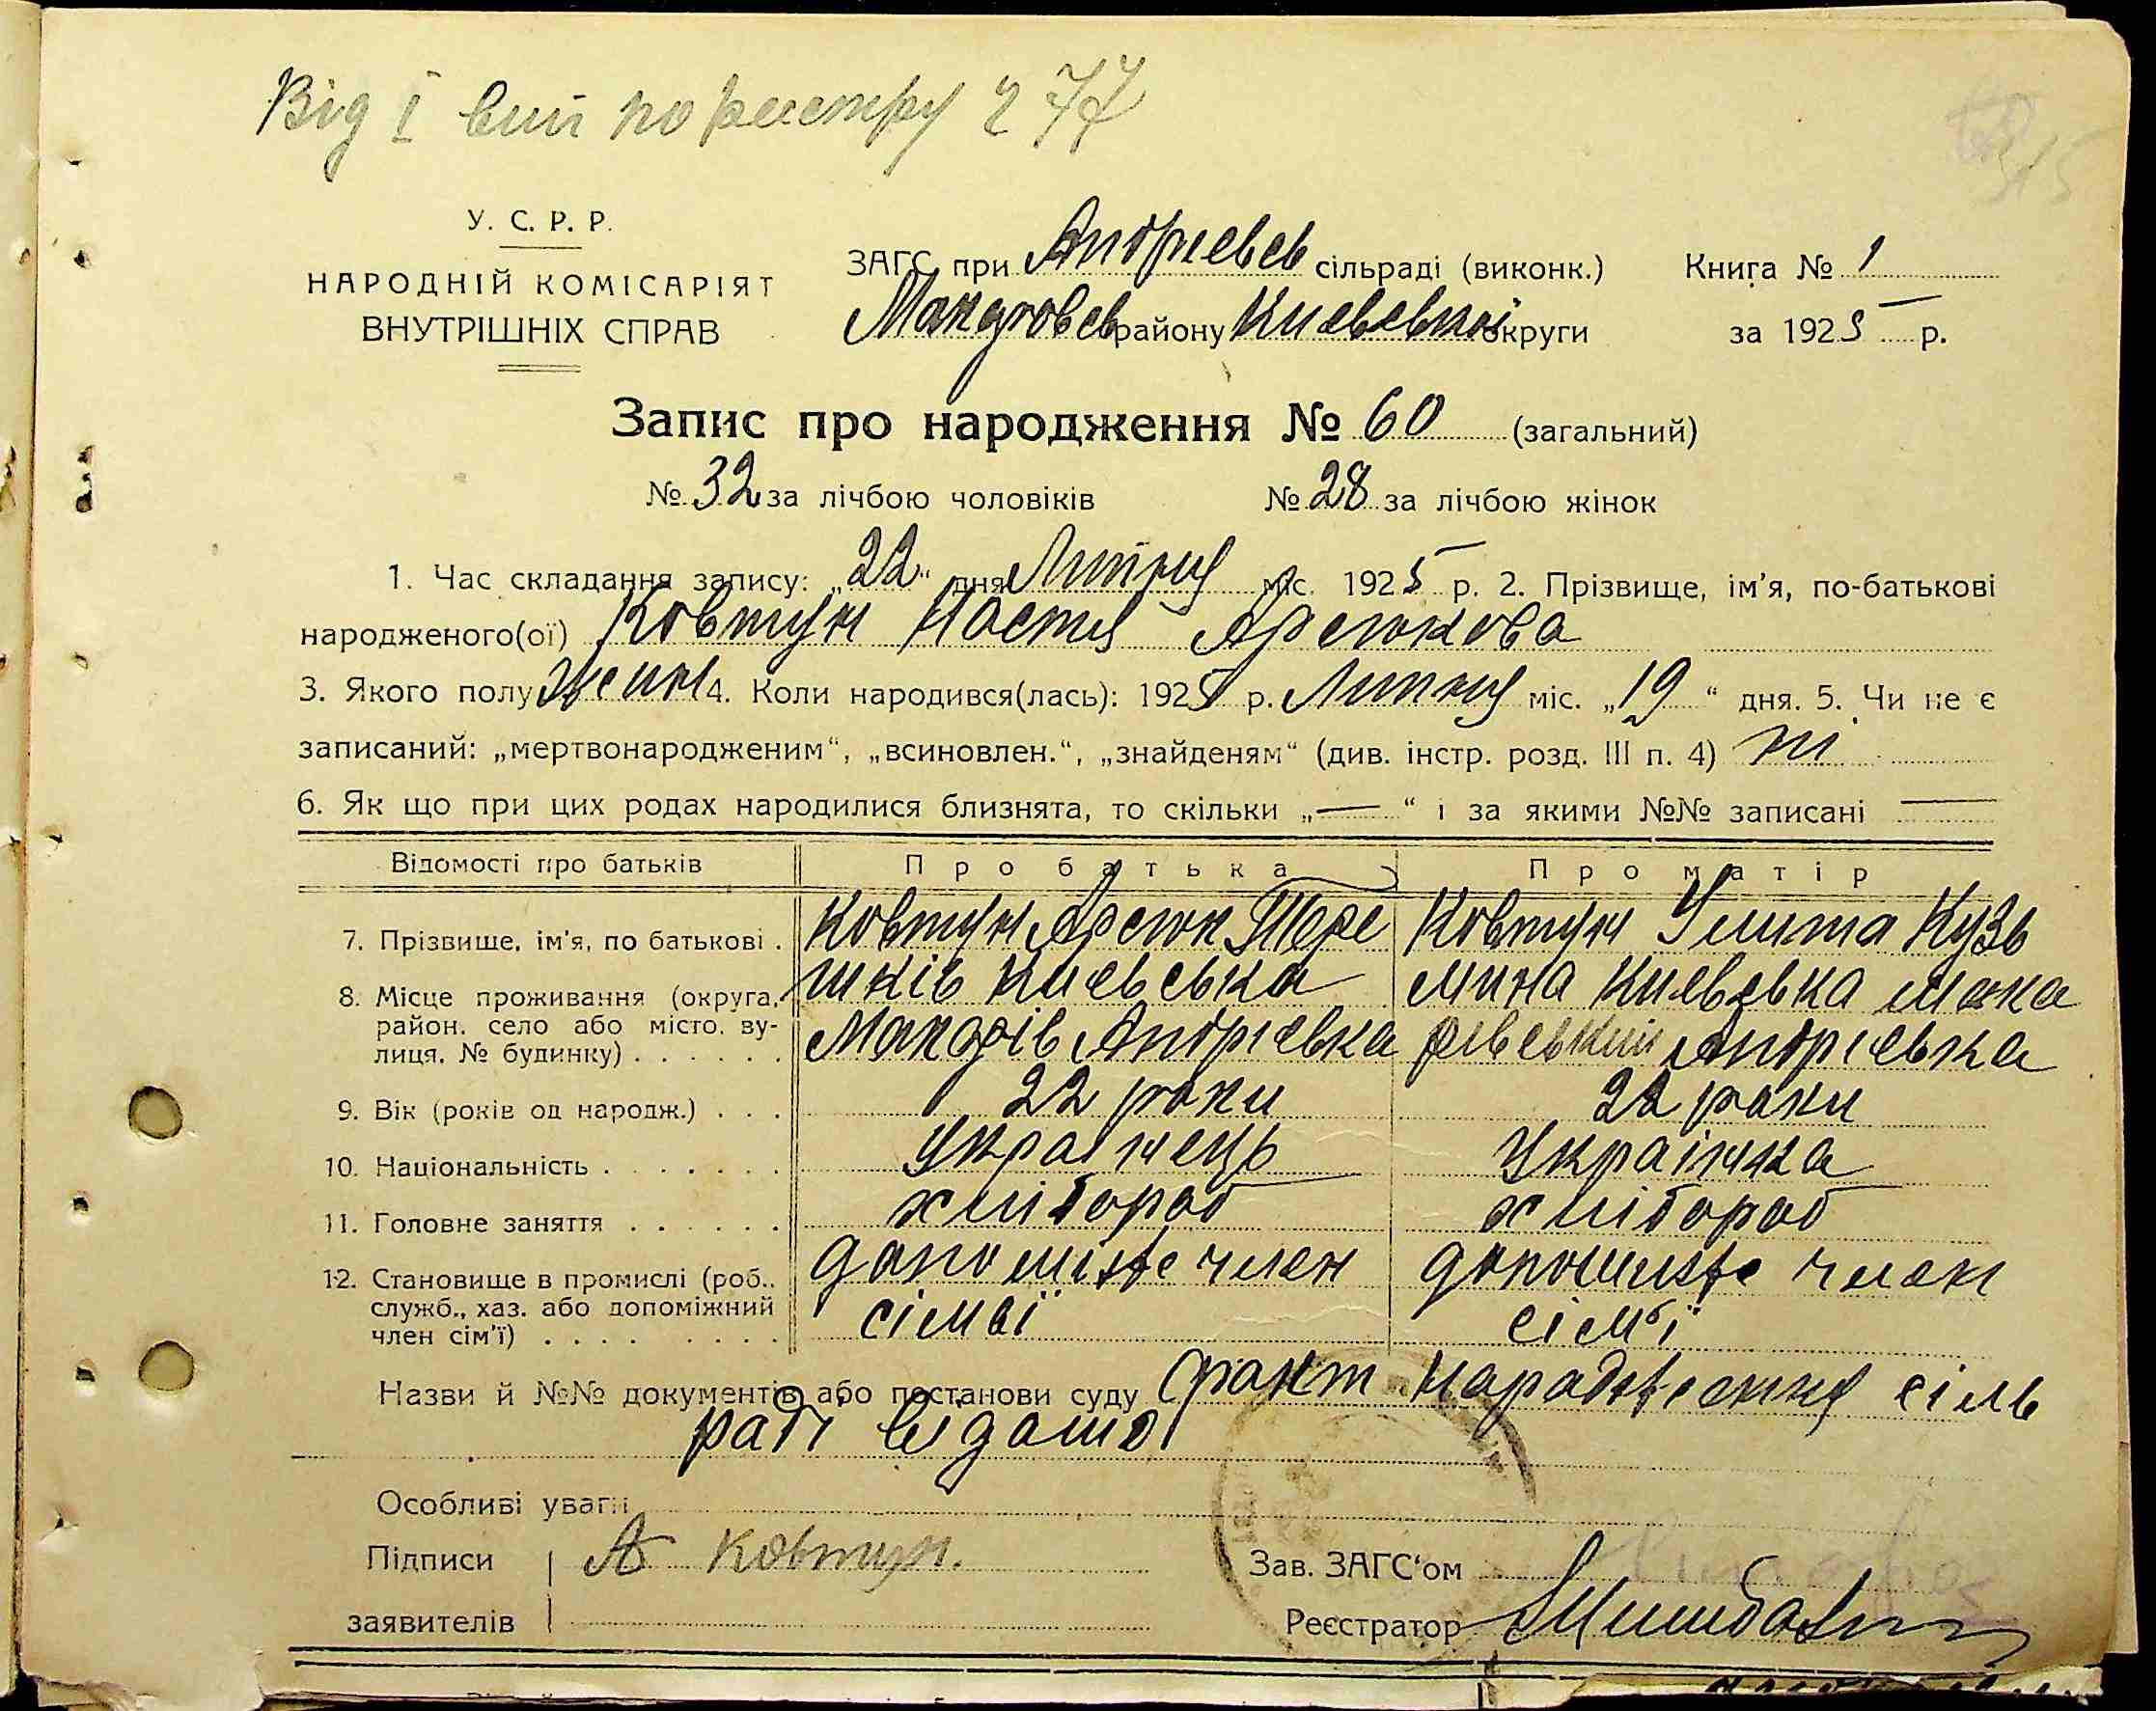 Від І вип по реєстру ч 77
315
У. С. Р. Р.
НАРОДНІЙ КОМІСАРІЯТ
ВНУТРІШНІХ СПРАВ
ЗАГС при Андрієвсв сільраді (виконк.)
Макаровсв району Києвської округи
Книга № 1
за 1925 р.
Запис про народження № 60 (загальний)
№ 32 за лічбою чоловіків № 28 за лічбою жінок
1. Час складання запису: „22“ дня Липня міс. 1925 р. 2. Прізвище, ім'я, по-батькові
народженого(ої) Ковтун Настя Арсенкова
3. Якого полу Жин 4. Коли народився(лась): 1925 р. Липня міс. „19“ дня. 5. Чи не є
записаний: „мертвонародженим“, „всиновлен.“, „знайденям“ (див. інстр. розд. III п. 4) ні
6. Як що при цих родах народилися близнята, то скільки „—“ і за якими №№ записані —
Відомості про батьків Про батька Про матір
7. Прізвище, ім'я, по батькові . Ковтун Арсен Тере Ковтун Улита Кузь
8. Місце проживання (округа, шків Києвська мина Києвська Мака
район, село або місто, ву-
лиця, № будинку) . . . . . . Макарів Андрієвка рівський Андрієвка
9. Вік (років од народж.) . . . 22 роки 22 роки
10. Національність . . . . . . . Українець Українка
11. Головне заняття . . . . . . хлібороб хлібороб
12. Становище в промислі (роб., допоміжне член допоміжне член
служб., хаз. або допоміжний
член сім'ї) . . . . . . . . сімьї сім'ї
Назви й №№ документів або постанови суду Факт народження сіль
раді відомо
Особливі уваги
Підписи А Ковтун.
заявителів
Зав. ЗАГС'ом
Реєстратор